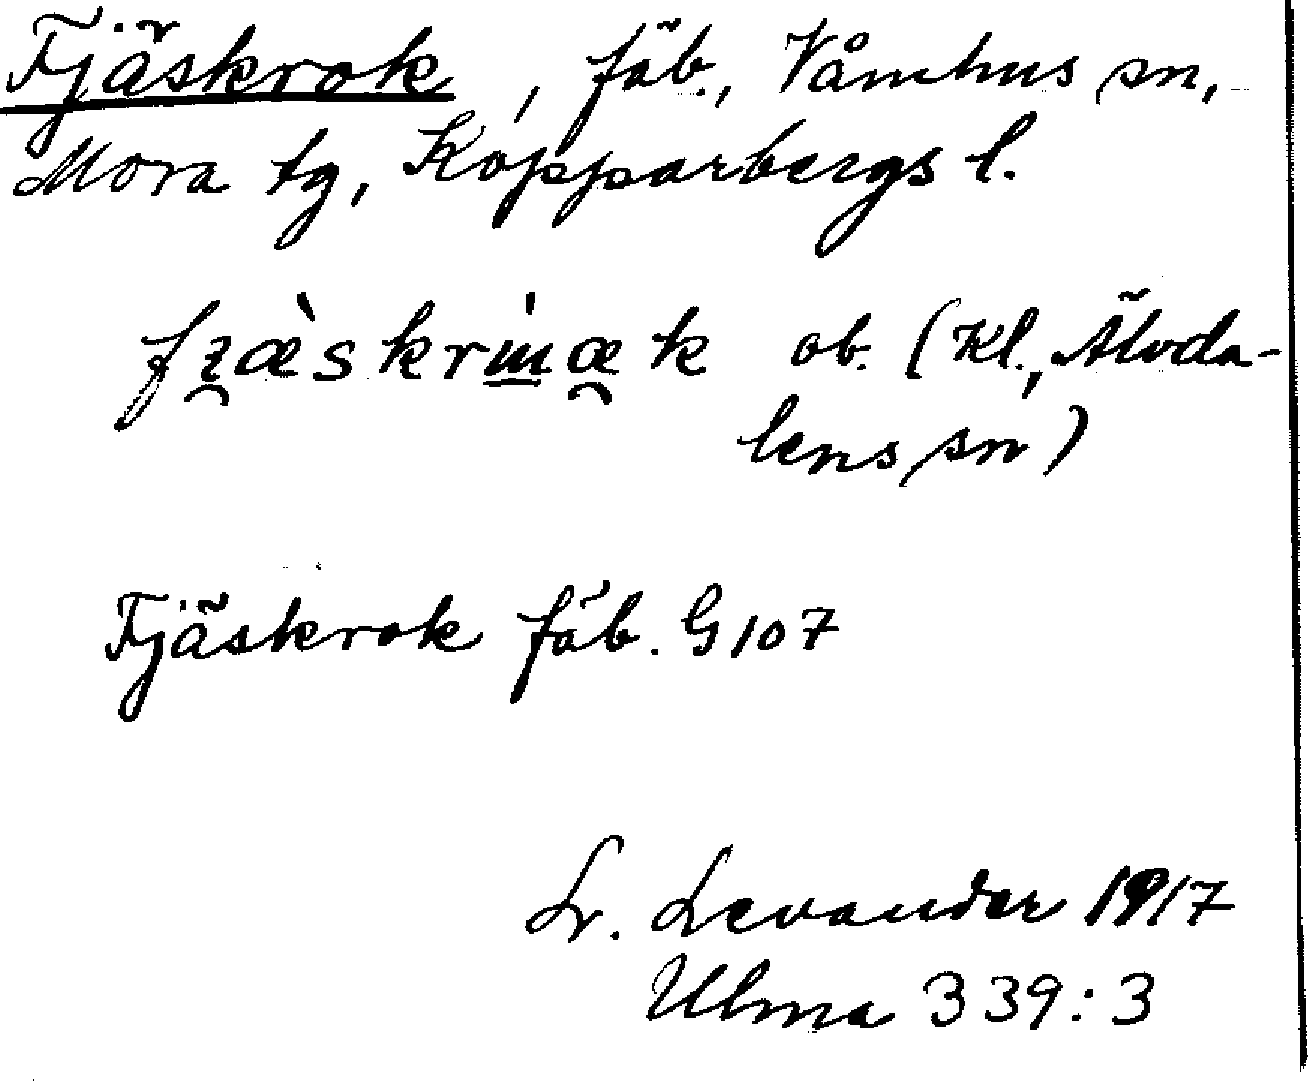 Fjäskrok, fäb., Våmhus sn,
Mora tg, Kopparbergs l.
ob. (Kl., Älvda-
lens sn)
Fjäskrok fäb. G 107
L. Levander 1917
Ulma 339:3